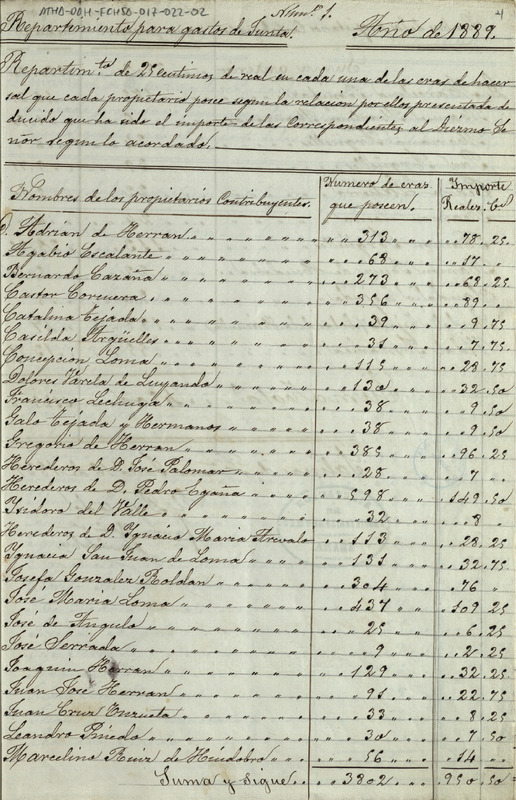 ATHA-DAH-FCHSA-017-022-02
Num.º 1.
4
Repartimiento para gastos de Junta. Año de 1889.
Repartim.to de 25 centimos de real en cada una de las eras de hacer
sal que cada propietario posee segun la relacion por ellos presentada de
ducido que ha sido el importe de las Correspondientes al Diezmo Se
ñor segun lo acordado.
Nombres de los propietarios Contribuyentes. Numero de eras que poseen. Importe Reales. Cs
D. Adrian de Herran 313 78.25
Agabio Escalante 68 17
Bernardo Cazaña 273 68.25
Castor Corcuera 356 89
Catalina Tejada 39 9.75
Casilda Arguelles 31 7.75
Concepcion Loma 115 28.75
Dolores Varela de Luyando 130 32.50
Francisco Lechuga 38 9.50
Galo Tejada y Hermanos 38 9.50
Gregorio de Herran 385 96.25
Herederos de D. José Palomar 28 7
Herederos de D. Pedro Egaña 598 149.50
Ysidora del Valle 32 8
Herederos de D. Ygnacio Maria Arevalo 113 28.25
Ygnacia San Juan de Loma 131 32.75
Josefa Gonzalez Roldan 304 76
José Maria Loma 437 109.25
José de Angulo 25 6.25
José Serrada 9 2.25
Joaquin Herran 129 32.25
Juan José Herran 91 22.75
Juan Cruz Unzueta 33 8.25
Leandro Pinedo 30 7.50
Marcelino Ruiz de Huidobro 56 14
Suma y sigue 3802 950.50